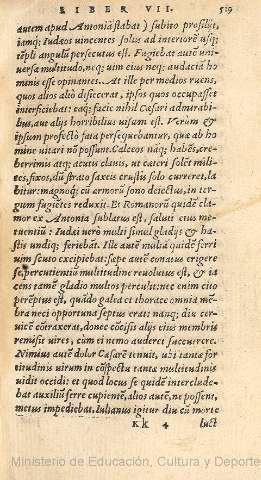 LIBER VII. 519
autem apud Antoniã stabat) subito prosiluit,
iamq; Iudæos uincentes solus ad interiorẽ usq;
tẽpli angulũ persecutus est. Fugiebat autẽ uni
uersa multitudo, neq; uim eius neq; audacia ho
minis esse opinantes. At ille per medios ruens,
quos alios aliò disijceret, ipsos quos occupasset
interficiebat: eaq; facie nihil Cæsari admirabi
lius, aut alijs horribilius uisum est. Verum &
ipsum profectò fata persequebantur, quæ ab ho
mine uitari nõ possunt. Calceos nãq; habẽs, cre
berrimis atq; acutis clauis, ut cæteri solẽt mili
tes, fixos, dũ strato saxeis crustis solo curreret, la
bitur: magnoq; cũ armorũ sono deiectus, in ter
gum fugiẽtes reduxit. Et Romanorũ quidẽ cla
mor ex Antonia sublatus est, saluti eius me
tuentiũ: Iudæi uerò multi simul gladijs & ha
stis undiq; feriebãt. Ille autẽ multa quidẽ ferri
uim scuto excipiebat: sæpe autẽ conatus erigere
se, percutientiũ multitudine reuolutus est, & ia
cens tamẽ gladio multos perculit: nec enim citò
perẽptus est, quãdo galea et thorace omnia mẽ
bra neci opportuna septus erat: nanq; diu cer-
uicẽ cõtraxerat, donec cõcisis alijs eius membris
remisit uires, cum ei nemo auderet succurrere.
Nimius autẽ dolor Cæsarẽ tenuit, ubi tantæ for
titudinis uirum in cõspectu tantæ multitudinis
uidit occidi: et quod locus se quidẽ interclude-
bat auxiliũ ferre cupientẽ, alios autẽ, ne possent,
metus impediebat. Iulianus igitur diu cũ morte
Kk 4 luct
Ministerio de Educación, Cultura y Deporte